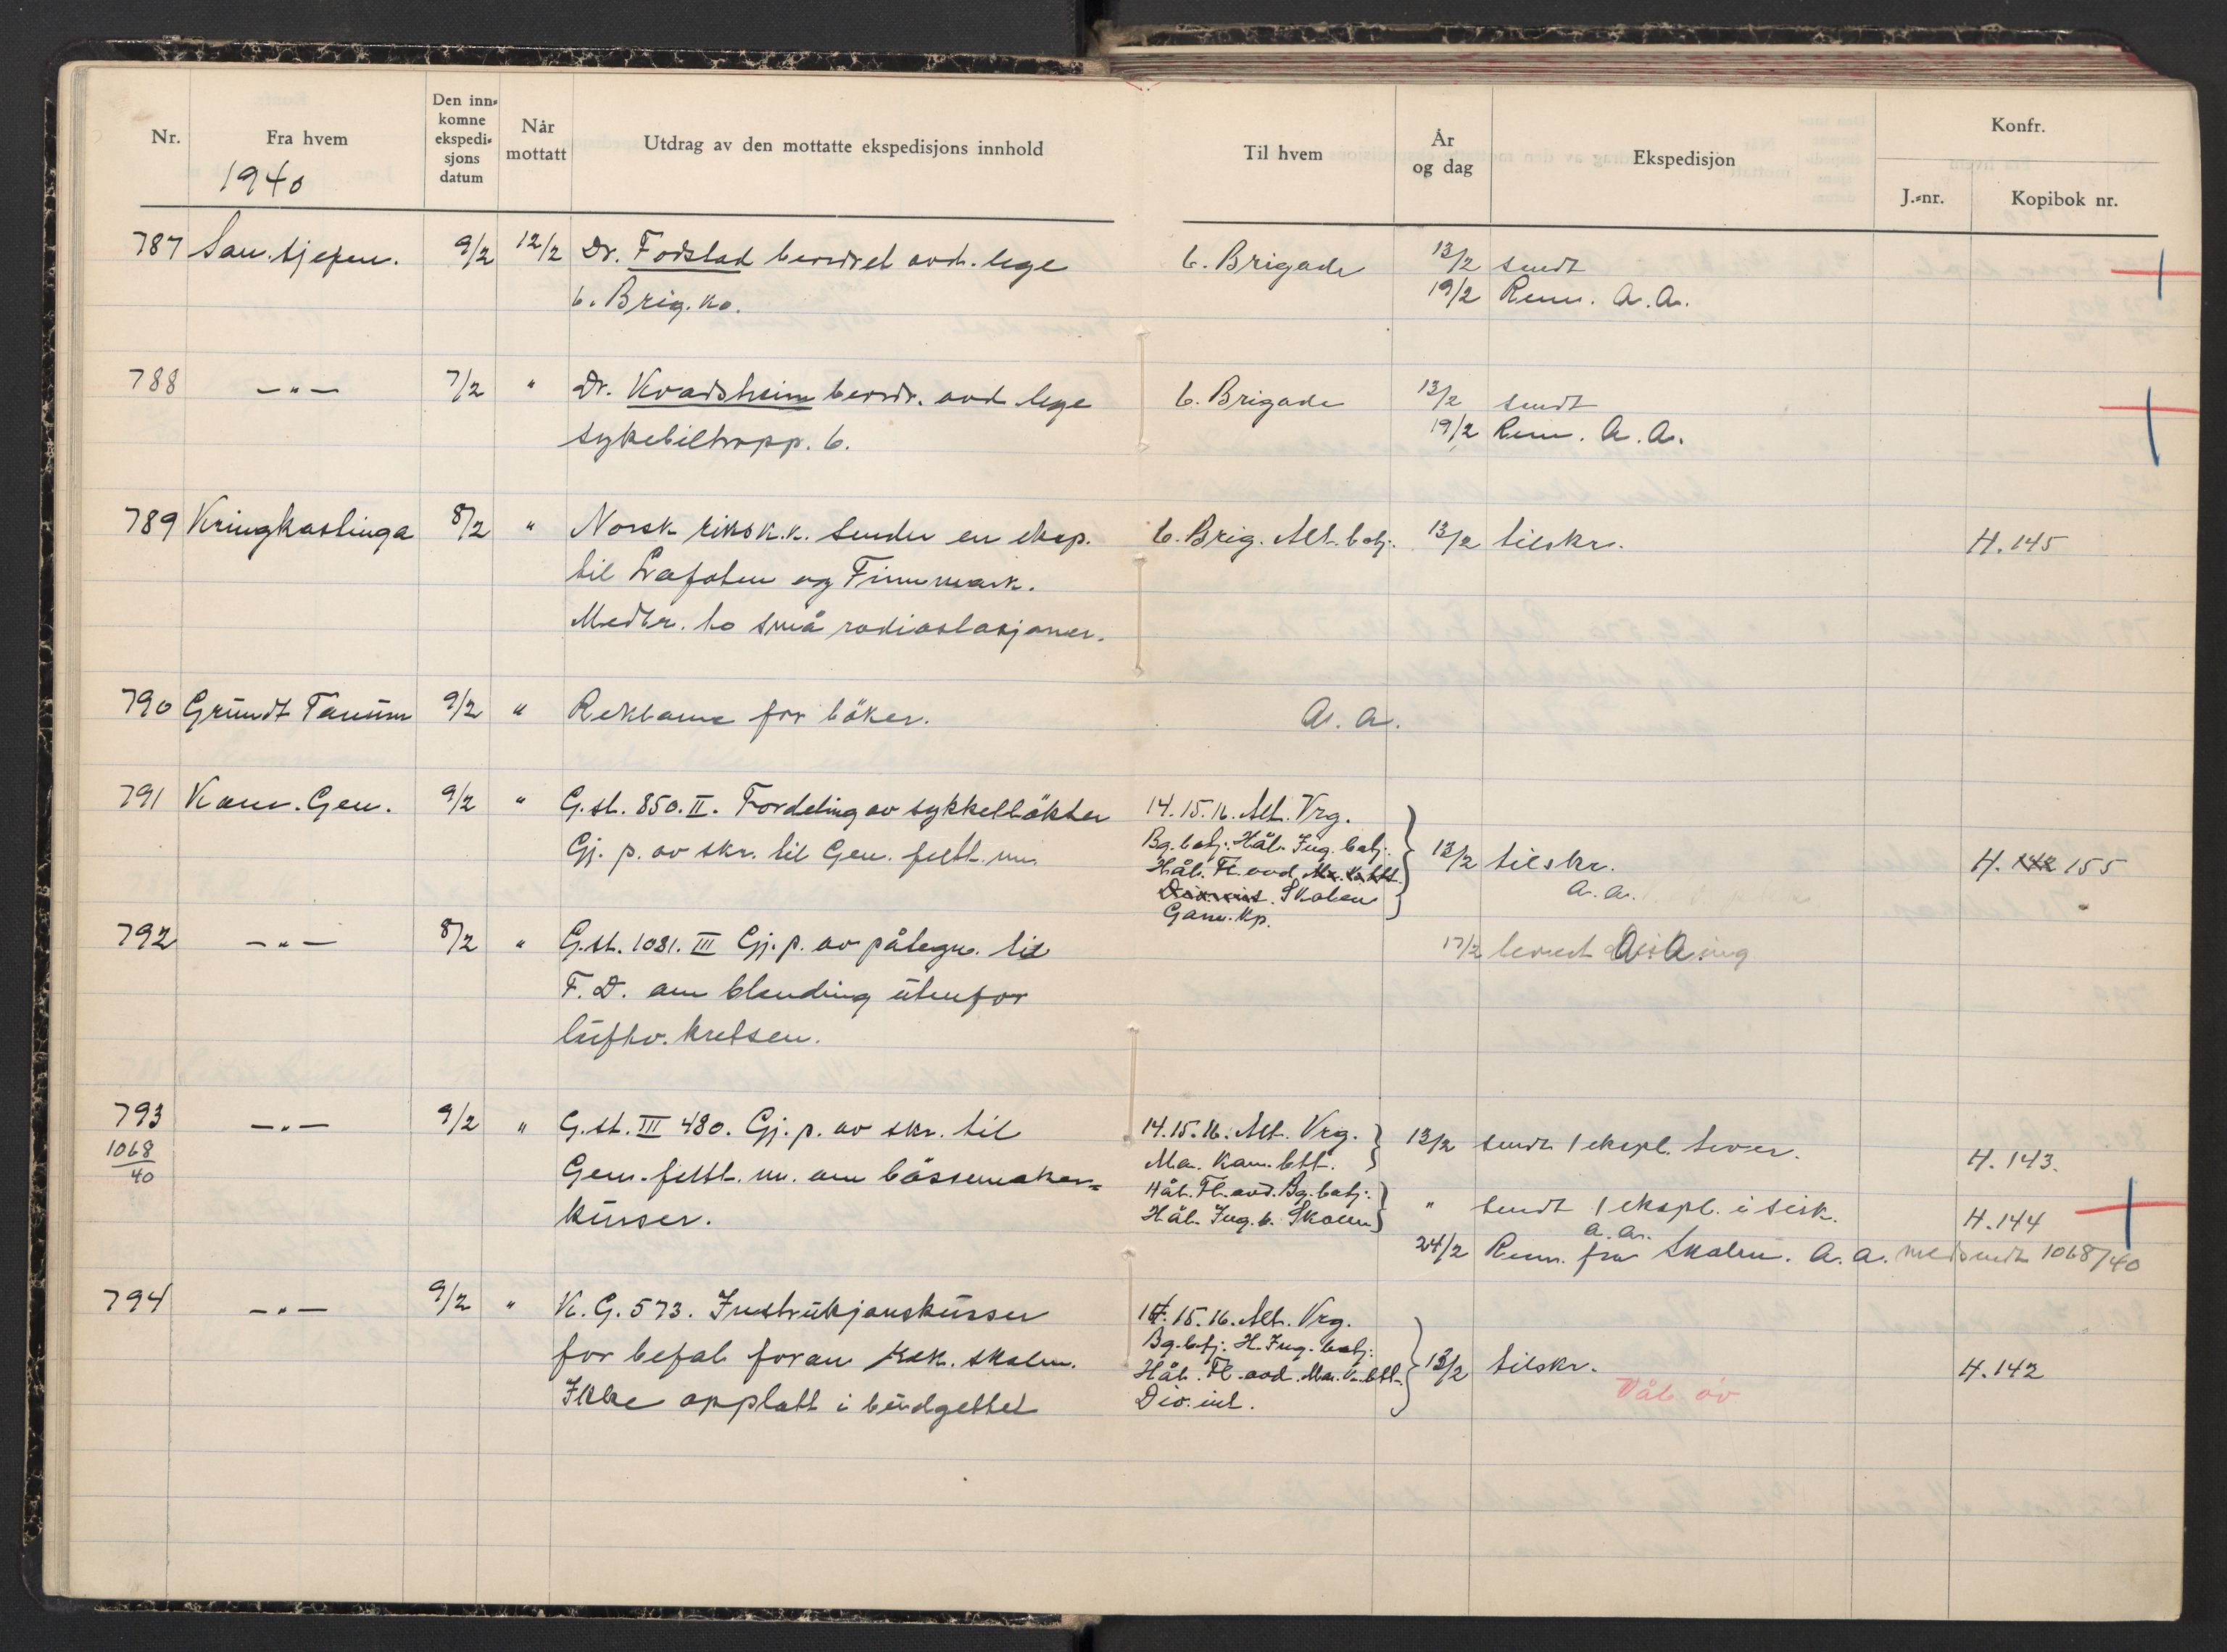 Nr. Fra hvem Den inn-komne ekspedi-sjons datum Når mottatt Utdrag av den mottatte ekspedisjons innhold Til hvem År og dag Ekspedisjon Konfr.
J.-nr. Kopibok nr.
1940
787 San.sjefen. 9/2 12/2 Dr. Fodstad beordret avd. lege 6. Brigade 13/2 sendt
6. Brig. ko. 19/2 Renv. A.A.
788 —"— 7/2 " Dr. Kvadsheim beordr. avd lege 6. Brigade 13/2 sendt
sykebiltropp. 6. 19/2 Renv. A.A.
789 Kringkastinga 8/2 " Norsk riksk.k. sender en eksp. 6. Brig. Alt. batj. 13/2 tilskr. H. 145
til Lofoten og Finnmark.
Medbr. to små radiostasjoner.
790 Grundt Tanum 9/2 " Reklame for bøker. A. A.
791 Kom. Gen. 9/2 " G.st. 850. II. Fordeling av sykkellökter 14. 15. 16. Alt. Vrg.
Gj. p. av skr. til Gen. feltt. m. Bg. batj. Hål. Ing. batj.
Hål. Fl. avd. 13/2 tilskr. H. 142 155
Skolen A.A.
Garn. kp.
792 —"— 8/2 " G.st. 1031. III Gj. p. av påtegn. til 17/2 A.A.
F.D. om blending utenfor
luftv. kretsen.
793 —"— 9/2 " G.st. III 480. Gj. p. av skr. til 14. 15. 16. Alt. Vrg. 13/2 sendt 1 ekspl. hver. H. 143.
1068/40 Gen. feltt. m. om bössemaker= Ma. Kom. btt.
kurser. Hål. Fl. avd. Bg. batj. " sendt 1 ekspl. i sirk. H. 144
Hål. Ing. b. Skolen A.A.
24/2 Renv. fra Skolen. A.A. medsendt 1068/40
794 —"— 9/2 " K.G. 573. Instruksjonskurser 14. 15. 16. Alt. Vrg.
for befal foran rek. skolen. Bg. btj. H. Ing. batj.
Ikke opplatt i budgettet Hål. Fl. avd. Ma. K. btt. 13/2 tilskr. H. 142
Div. int. Våb. öv